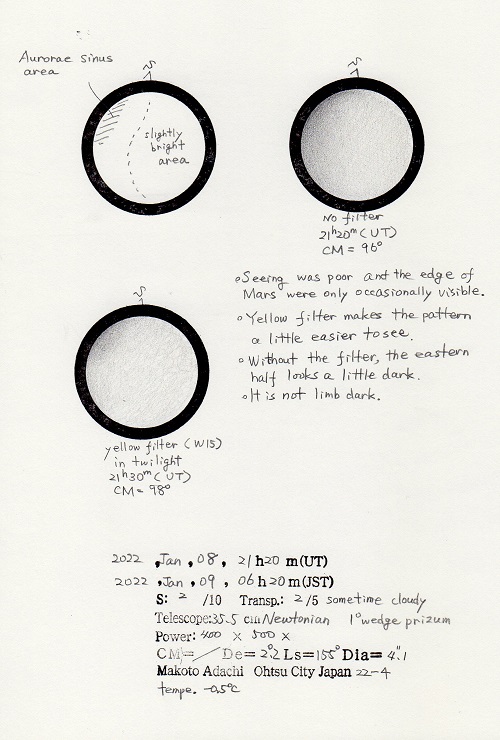 Aurorae sinus
area
S
slightly
bright
area
S
No filter
21h20m (UT)
CM = 96°
• Seeing was poor and the edge of
Mars were only occasionally visible.
• Yellow filter makes the pattern
a little easier to see.
• Without the filter, the eastern
half looks a little dark.
• It is not limb dark.
S
yellow filter (W15)
in twilight
21h30m (UT)
CM = 98°
2022 , Jan , 08 , 21 h 20 m (UT)
2022 , Jan , 09 , 06 h 20 m (JST)
S: 2 /10 Transp.: 2/5 sometime cloudy
Telescope: 35.5 cm Newtonian 1° wedge prizum
Power: 400 × 500 ×
CM = De = 2.°2 Ls = 155° Dia = 4."1
Makoto Adachi Ohtsu City Japan 22-4
tempe. -0.5°C